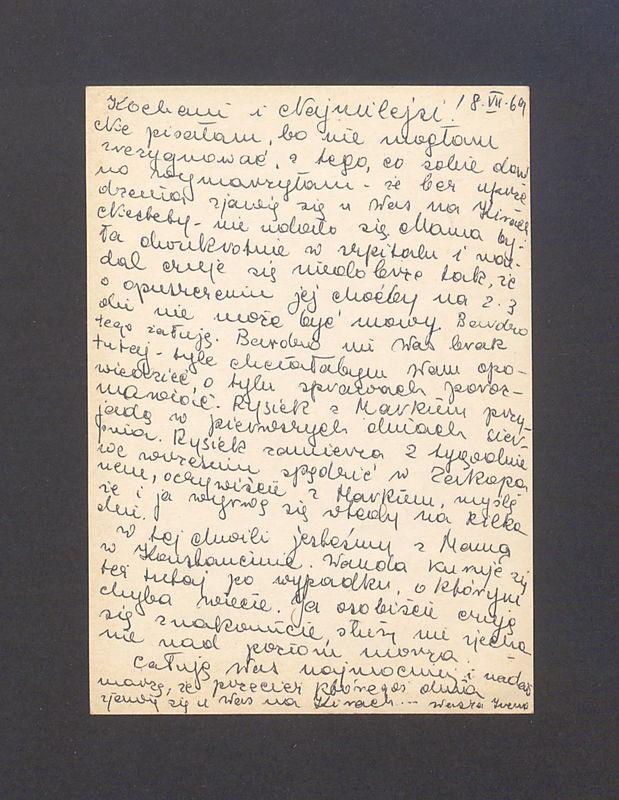 18.VII.69
Kochani i Najmilejsi!
Nie pisałam, bo nie mogłam
zrezygnować z tego, co sobie daw
no wymarzyłam - że bez uprze
dzenia zjawię się u Was na Kirach
Niestety - nie udało się Mama by-
ła dwukrotnie w szpitalu i na-
dal czuje się niedobrze tak, że
o opuszczeniu jej choćby na 2.3
dni nie może być mowy. Bardzo
tego żałuję. Bardzo mi Was brak
tutaj - tyle chciałabym Wam opo-
wiedzieć o tylu sprawach poroz-
mawiać. Rysiek z Markiem przy-
jadą w pierwszych dniach sier-
pnia. Rysiek zamierza 2 tygodnie
we wrześniu spędzić w Zakopa
nem, oczywiście z Markiem, myślę
że i ja wyrwę się wtedy na kilka
dni.
W tej chwili jesteśmy z Mamą
w Konstancinie. Wanda kuruje się
też tutaj po wypadku, o którym
chyba wiecie. Ja osobiście czuję
się znakomicie, służy mi zjecha
nie nad poziom morza.
Całuję Was najmocniej i nadal
marzę, że przecież któregoś dnia
zjawię się u Was na Kirach... Wasza Iwona